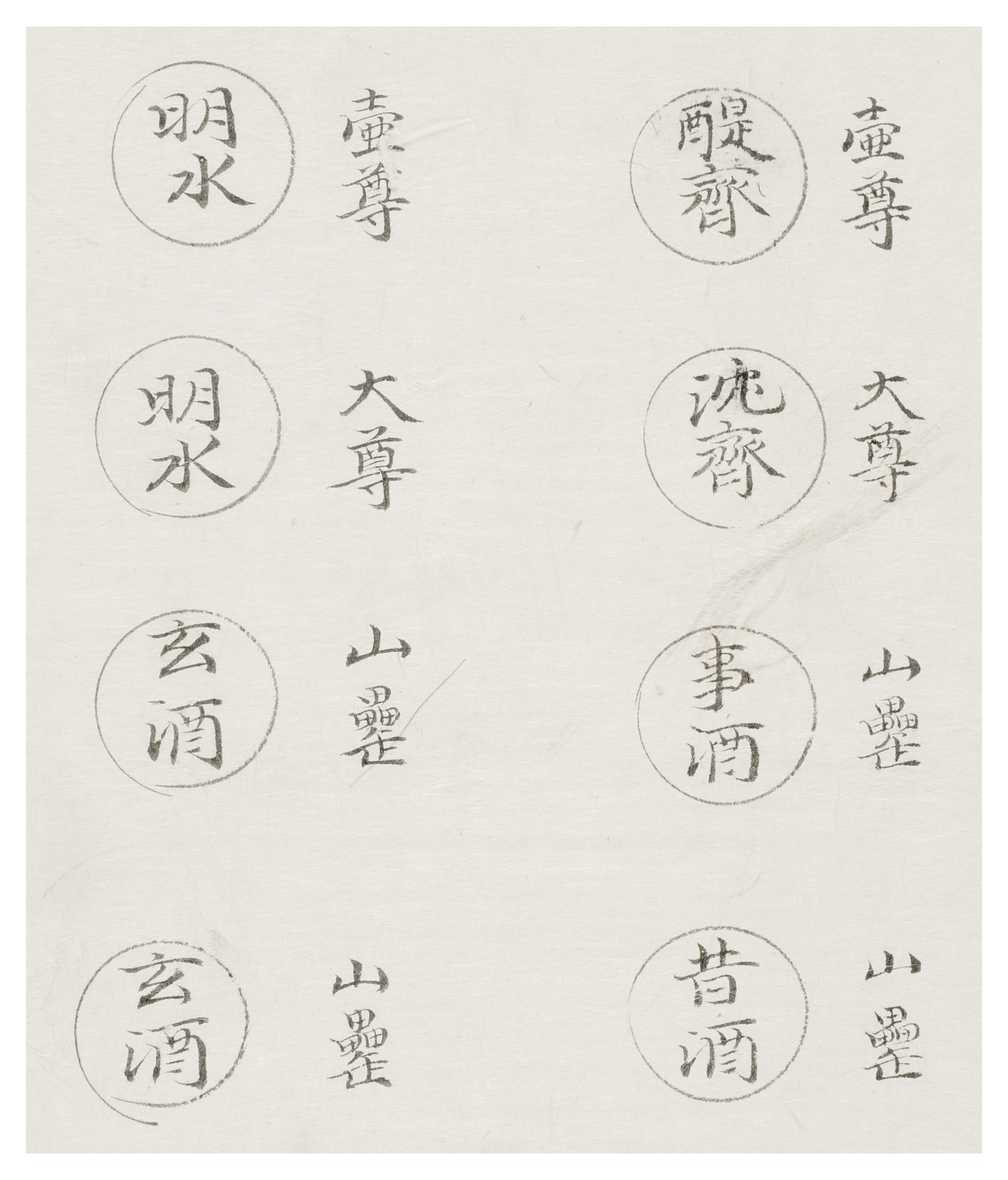 壷尊
醍齊
壷尊
明水
大尊
沈齊
大尊
明水
山罍
事酒
山罍
玄酒
山罍
昔酒
山罍
玄酒